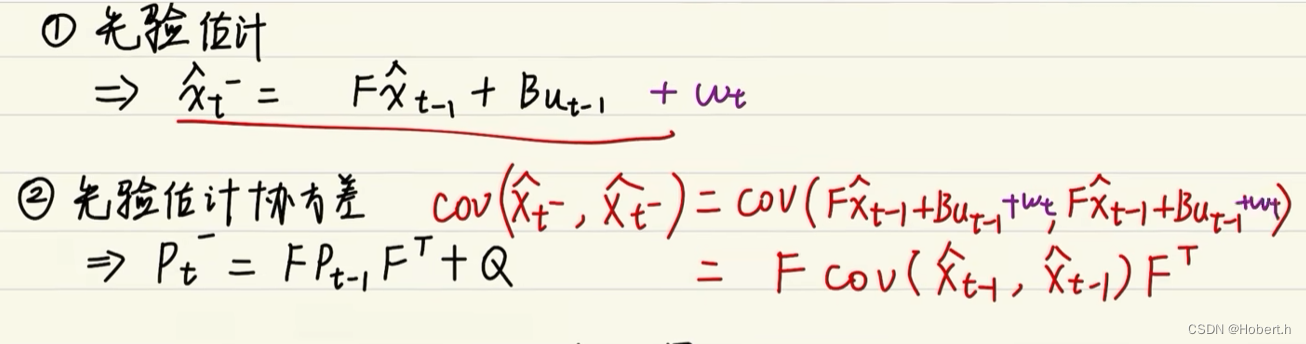 ① 先验估计
⇒ x̂ₜ⁻ = Fx̂ₜ₋₁ + Buₜ₋₁ + wₜ
② 先验估计协方差 cov(x̂ₜ⁻, x̂ₜ⁻) = cov(Fx̂ₜ₋₁+Buₜ₋₁+wₜ, Fx̂ₜ₋₁+Buₜ₋₁+wₜ)
⇒ Pₜ⁻ = FPₜ₋₁Fᵀ + Q = F cov(x̂ₜ₋₁, x̂ₜ₋₁)Fᵀ
CSDN @Hobert.h